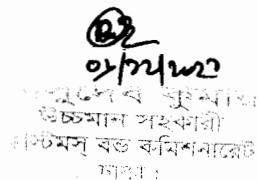 ০১/১২/২০২০
কুমার
উচ্চমান সহকারী
কাস্টমস্ বন্ড কমিশনারেট
ঢাকা।